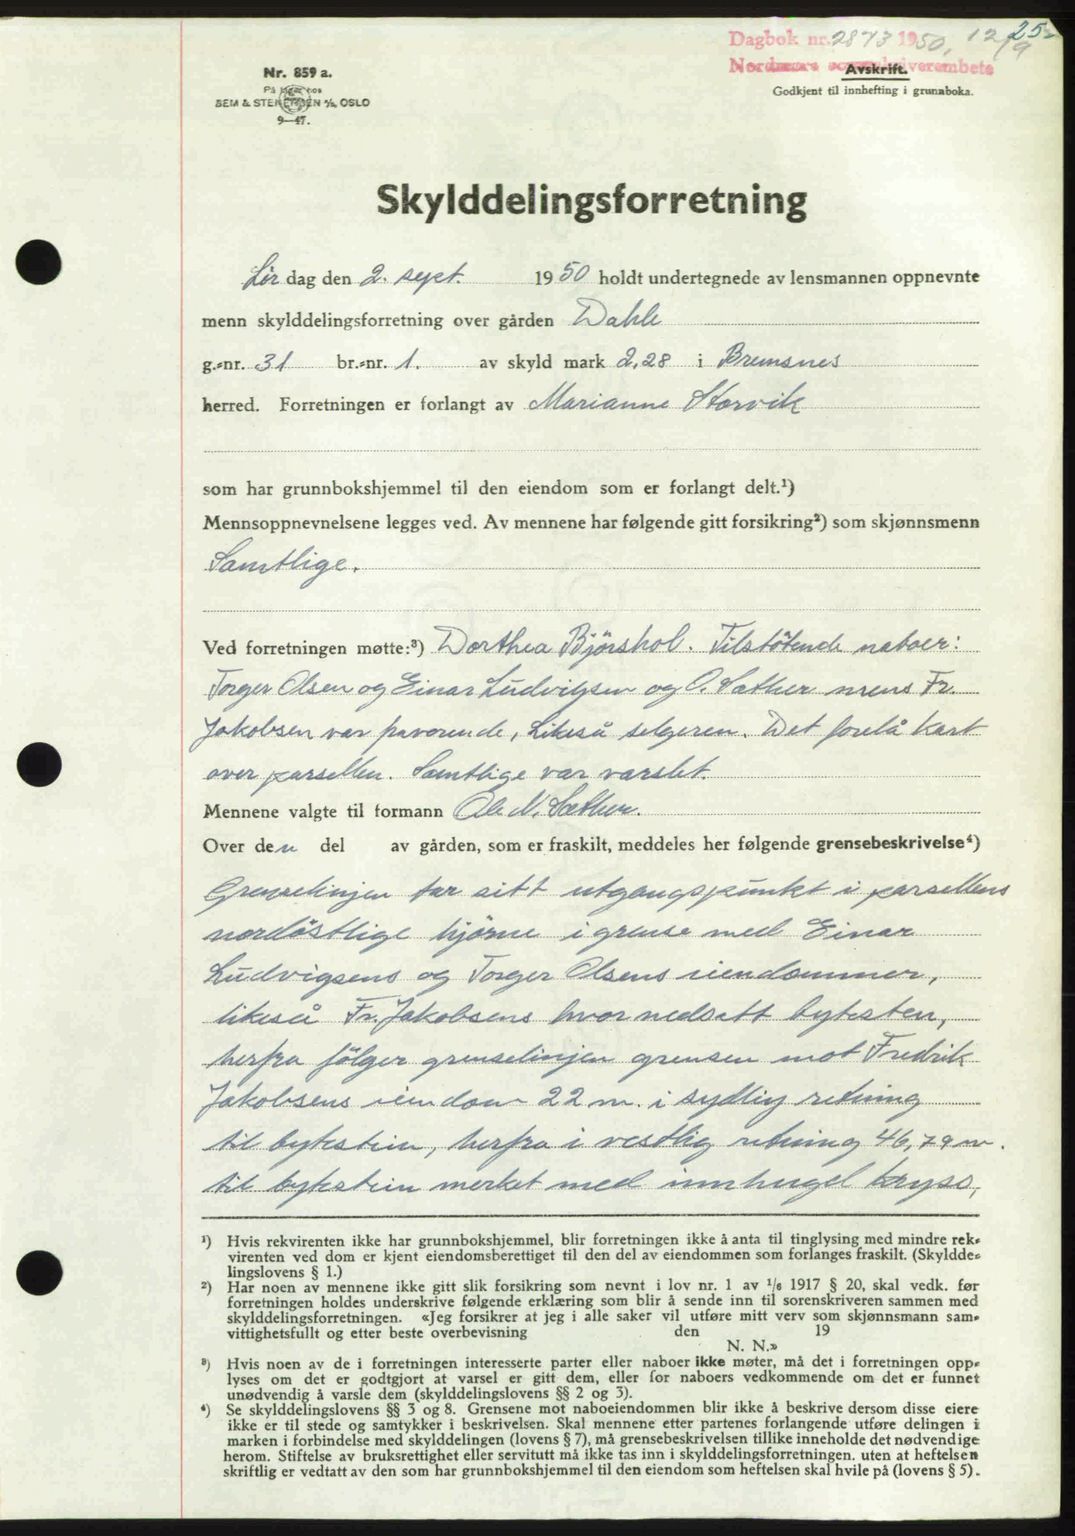 25.
Dagbok nr. 2873 1950, 12/9
Nordmøre sorenskriverembete
Nr. 859 a.
På lager hos
SEM & STENERSEN A/S, OSLO
9—47.
Avskrift.
Godkjent til innhefting i grunnboka.
Skylddelingsforretning
Lör dag den 2. sept. 1950 holdt undertegnede av lensmannen oppnevnte
menn skylddelingsforretning over gården Dahle
g.-nr. 31 br.-nr. 1. av skyld mark 2,28 i Bremsnes
herred. Forretningen er forlangt av Marianne Storvik
som har grunnbokshjemmel til den eiendom som er forlangt delt.¹)
Mennsoppnevnelsene legges ved. Av mennene har følgende gitt forsikring²) som skjønnsmenn
Samtlige.
Ved forretningen møtte:³) Dorthea Bjørshol. Tilstötende naboer:
Torger Olsen og Einar Ludvigsen og O. Sæther mens Fr.
Jakobsen var fraværende, likeså selgeren. Det forelå kart
over parsellen. Samtlige var varslet.
Mennene valgte til formann Ole N. Sæther.
Over den del av gården, som er fraskilt, meddeles her følgende grensebeskrivelse⁴)
Grenselinjen tar sitt utgangspunkt i parsellens
nordöstlige hjörne i grense med Einar
Ludvigsens og Torger Olsens eiendommer,
likeså Fr. Jakobsens hvor nedsatt bytesten,
herfra fölger grenselinjen grensen mot Fredrik
Jakobsens eiendom 22 m. i sydlig retning
til bytestein, herfra i vestlig retning 46,79 m.
til bytestein merket med innhugd kryss,
¹) Hvis rekvirenten ikke har grunnbokshjemmel, blir forretningen ikke å anta til tinglysing med mindre rek-
virenten ved dom er kjent eiendomsberettiget til den del av eiendommen som forlanges fraskilt. (Skyldde-
lingslovens § 1.)
²) Har noen av mennene ikke gitt slik forsikring som nevnt i lov nr. 1 av ¹/₆ 1917 § 20, skal vedk. før
forretningen holdes underskrive følgende erklæring som blir å sende inn til sorenskriveren sammen med
skylddelingsforretningen. «Jeg forsikrer at jeg i alle saker vil utføre mitt verv som skjønnsmann sam-
vittighetsfullt og etter beste overbevisning den 19
N. N.»
³) Hvis noen av de i forretningen interesserte parter eller naboer ikke møter, må det i forretningen opp-
lyses om det er godtgjort at varsel er gitt dem, eller for naboers vedkommende om det er funnet
unødvendig å varsle dem (skylddelingslovens §§ 2 og 3).
⁴) Se skylddelingslovens §§ 3 og 8. Grensene mot naboeiendommen blir ikke å beskrive dersom disse eiere
ikke er til stede og samtykker i beskrivelsen. Skal mennene etter partenes forlangende utføre delingen i
marken i forbindelse med skylddelingen (lovens § 7), må grensebeskrivelsen tillike inneholde det nødvendige
herom. Stiftelse av bruksrettighet eller servitutt må ikke tas inn i skylddelingsforretningen, uten at heftelsen
skriftlig er vedtatt av den som har grunnbokshjemmel til den eiendom som heftelsen skal hvile på (lovens § 5).